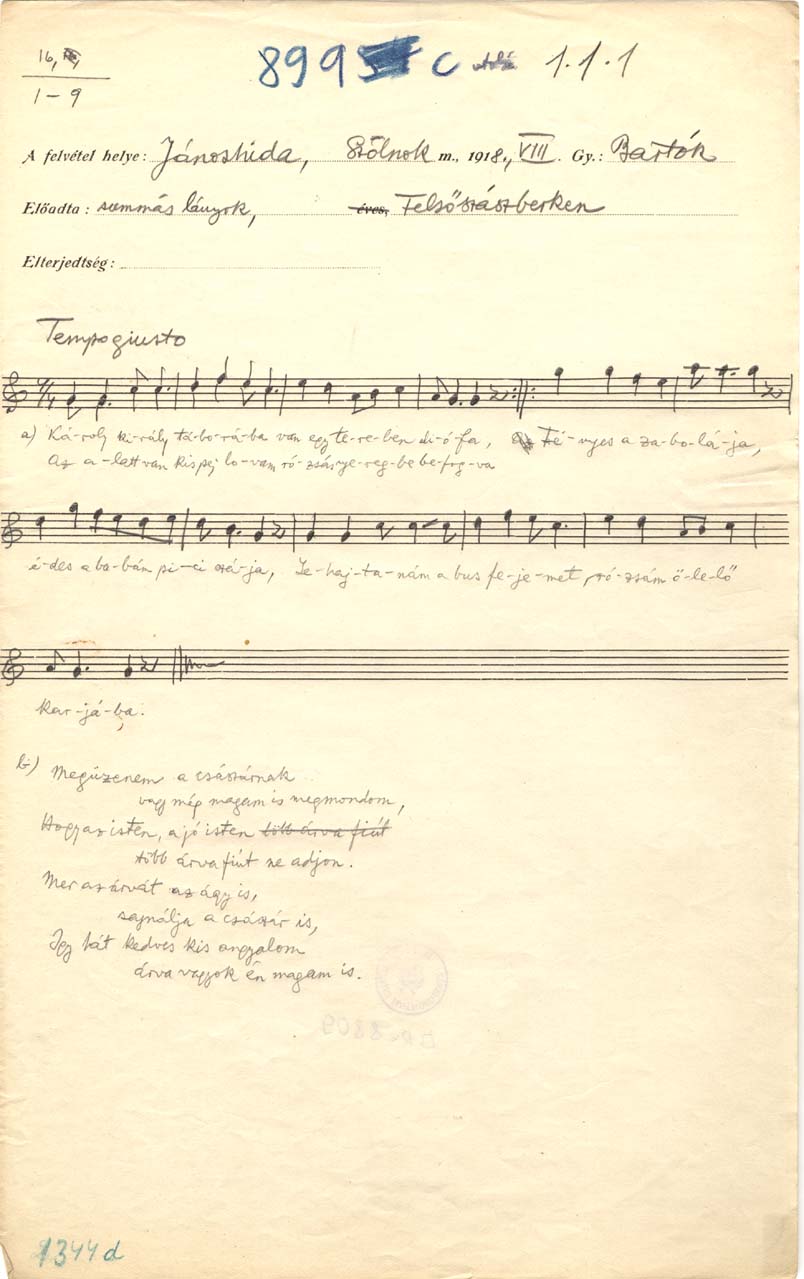 16,
8995 C 1.1.1
1-9
A felvétel helye: Jánoshida, Szolnok m., 1918, VIII. Gy.: Bartók
Előadta: summás lányok, éves, Felsőszászberken
Elterjedtség:
Tempo giusto
a) Ká-roly ki-rály tá-bo-rá-ba van egy te-re-ben di-ó-fa, Fé-nyes a za-bo-lá-ja,
Az a-latt van kis pej lo-vam ró-zsás nye-reg-be be-fog-va
é-des a ba-bám pi-ci szá-ja, Le-haj-ta-nám a bus fe-je-met, ró-zsám ö-le-lő
kar-já-ba.
b) Megüzenem a császárnak
vagy még magam is megmondom,
Hogy az isten, a jó isten több árva fiút
több árva fiút ne adjon.
Mer az árvát az ágy is,
sajnálja a császár is,
Igy hát kedves kis angyalom
árva vagyok én magam is.
1344d